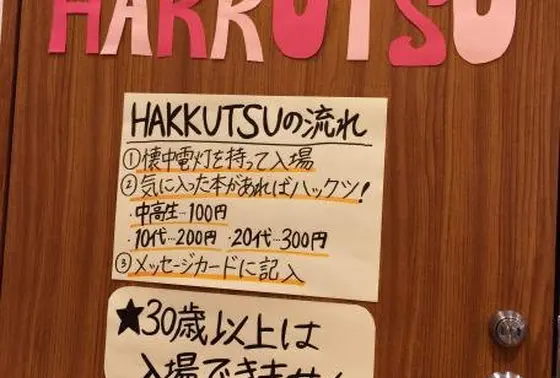 HAKKUTSU
HAKKUTSUの流れ
①懐中電灯を持って入場
②気に入った本があればハックツ!
・中高生…100円
・10代…200円 ・20代…300円
③メッセージカードに記入
★30歳以上は
入場できません